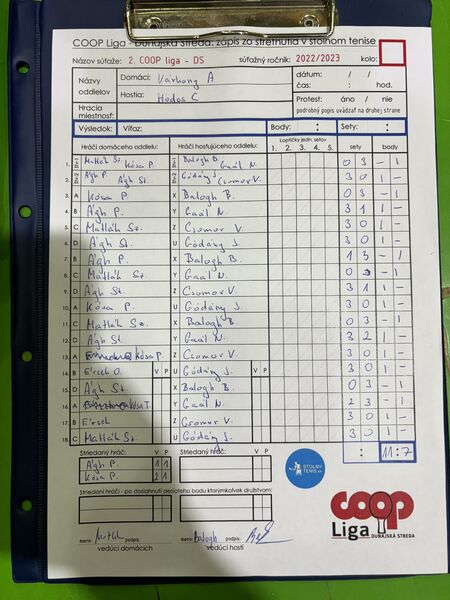 COOP Liga - Dunajská Streda: zápis zo stretnutia v stolnom tenise
Názov súťaže: 2. COOP liga - DS súťažný ročník: 2022/2023 kolo:
Názvy oddielov Domáci: Várkony A dátum: / /
Hostia: Hodos C čas: : hod.
Hracia miestnosť: Protest: áno / nie
podrobný popis uvádzať na druhej strane
Výsledok: Víťaz: Body: : Sety: :
Hráči domáceho oddielu: Hráči hosťujúceho oddielu: Loptičky jedn. setov sety body
1. 2. 3. 4. 5.
1. Matlák Sz. Kósa P. Balogh B. Gaál N. 0 3 - 1
2. Ágh P. Ágh St. Gódány J. Csomor V. 3 0 1 -
3. A Kósa P. X Balogh B. 0 3 - 1
4. B Ágh P. Y Gaál N. 3 1 1 -
5. C Matlák Sz. Z Csomor V. 3 0 1 -
6. D Ágh St. U Gódány J. 3 0 1 -
7. B Ágh P. X Balogh B. 1 3 - 1
8. C Matlák Sz. Y Gaál N. 0 3 - 1
9. D Ágh St. Z Csomor V. 3 1 1 -
10. A Kósa P. U Gódány J. 3 0 1 -
11. C Matlák Sz. X Balogh B 0 3 - 1
12. D Ágh St. Y Gaál N. 3 2 1 -
13. A Kósa P. Z Csomor V. 3 0 1 -
14. B Érsch O. V P U Gódány J. V P 3 0 1 -
15. D Ágh St. X Balogh B. 0 3 - 1
16. A Kósa P. Y Gaál N. 2 3 - 1
17. B Érsch Z Csomor V. 3 0 1 -
18. C Matlák Sz. U Gódány J. 3 0 1 -
Striedaný hráč: V P Striedaný hráč: V P : 11:7
Ágh P. 1 1
Kósa P. 2 1
STOLNÝ TENIS.SK
Striedaní hráči - po dosiahnutí desiateho bodu ktorýmkoľvek družstvom:
COOP
Liga DUNAJSKÁ STREDA
meno podpis meno Balogh podpis
vedúci domácich vedúci hostí